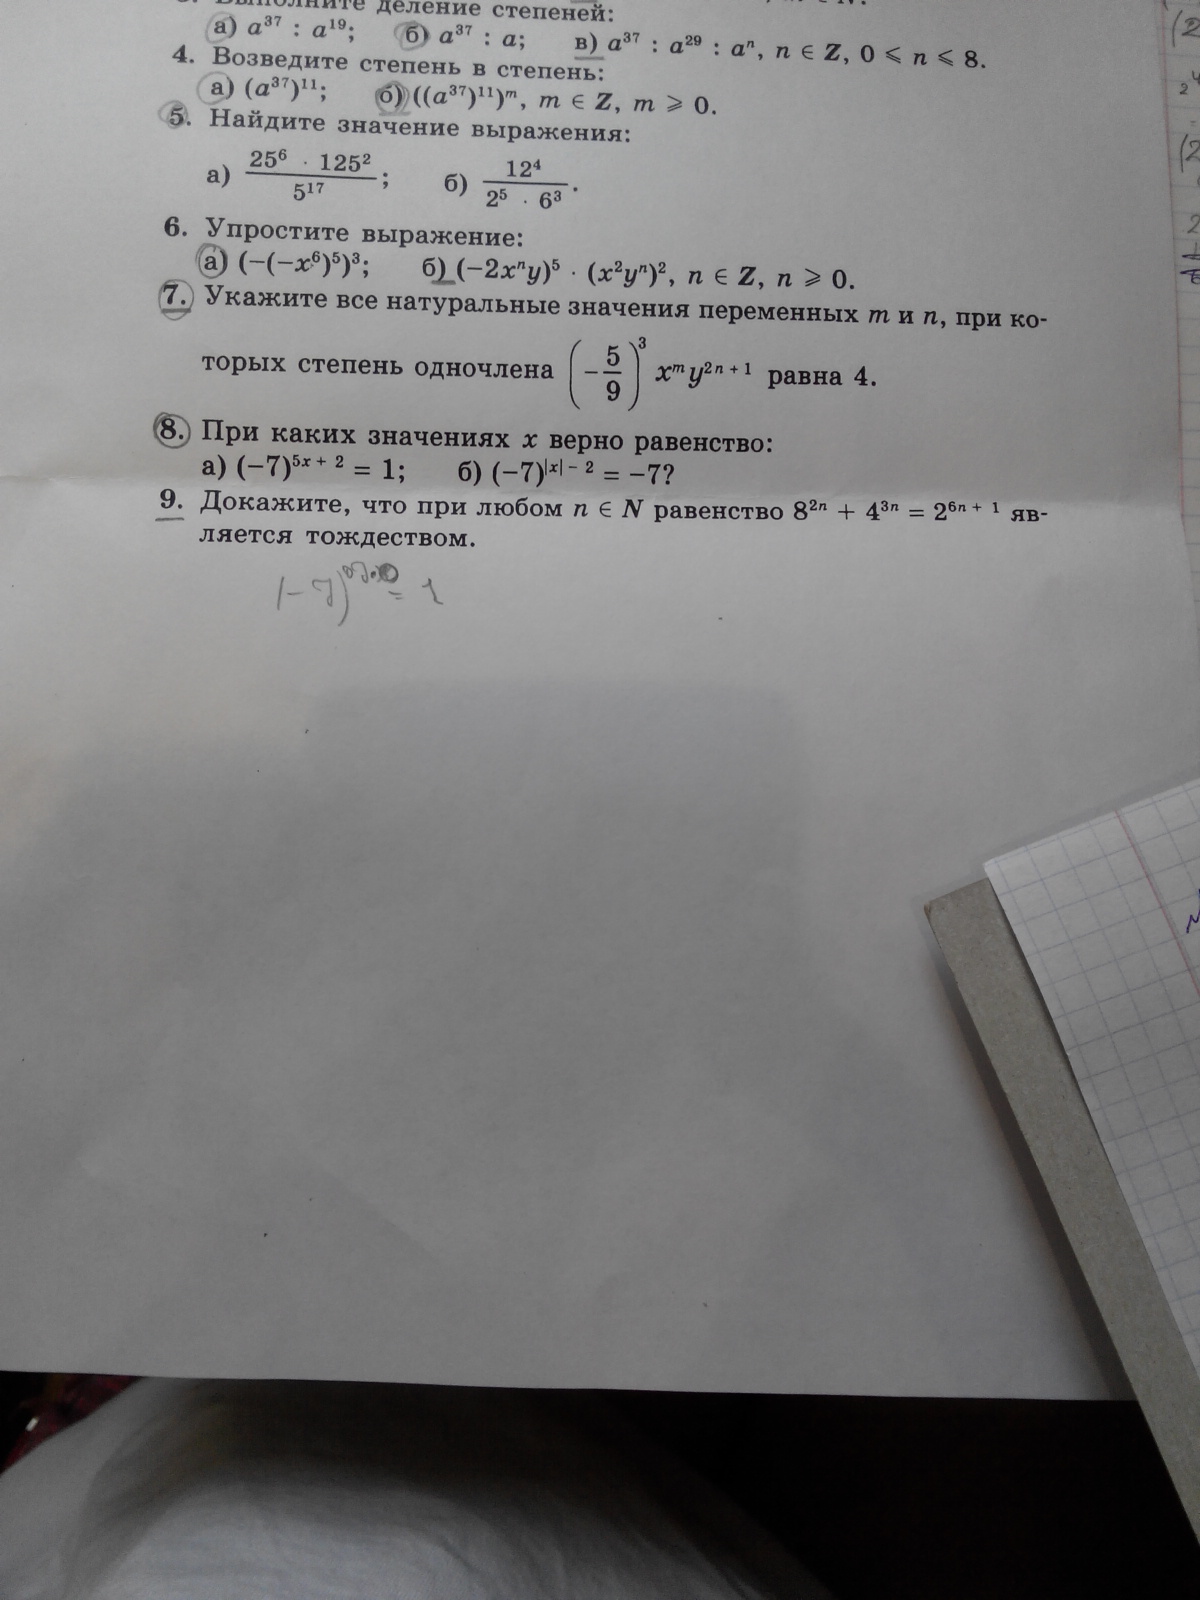 Выполните деление степеней:
а) a³⁷ : a¹⁹; б) a³⁷ : a; в) a³⁷ : a²⁹ : aⁿ, n ∈ Z, 0 ⩽ n ⩽ 8.
4. Возведите степень в степень:
а) (a³⁷)¹¹; б) ((a³⁷)¹¹)ᵐ, m ∈ Z, m ⩾ 0.
5. Найдите значение выражения:
а) 25⁶ · 125² / 5¹⁷; б) 12⁴ / 2⁵ · 6³.
6. Упростите выражение:
а) (−(−x⁶)⁵)³; б) (−2xⁿy)⁵ · (x²yⁿ)², n ∈ Z, n ⩾ 0.
7. Укажите все натуральные значения переменных m и n, при ко-
торых степень одночлена (−5/9)³ xᵐy²ⁿ⁺¹ равна 4.
8. При каких значениях x верно равенство:
а) (−7)⁵ˣ⁺² = 1; б) (−7)^|x|−2 = −7?
9. Докажите, что при любом n ∈ N равенство 8²ⁿ + 4³ⁿ = 2⁶ⁿ⁺¹ яв-
ляется тождеством.
(−7) = 1